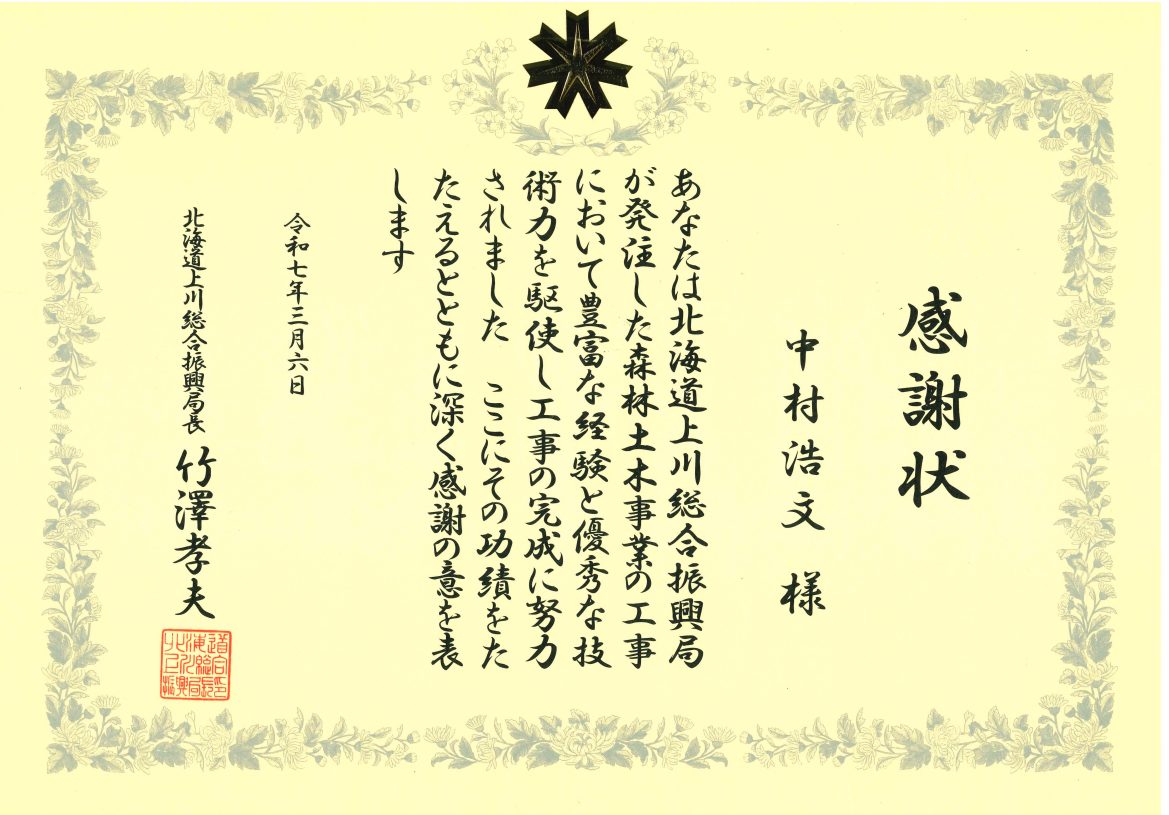 感謝状
中村浩文 様
あなたは北海道上川総合振興局
が発注した森林土木事業の工事
において豊富な経験と優秀な技
術力を駆使し工事の完成に努力
されました ここにその功績をた
たえるとともに深く感謝の意を表
します
令和七年三月六日
北海道上川総合振興局長 竹澤孝夫